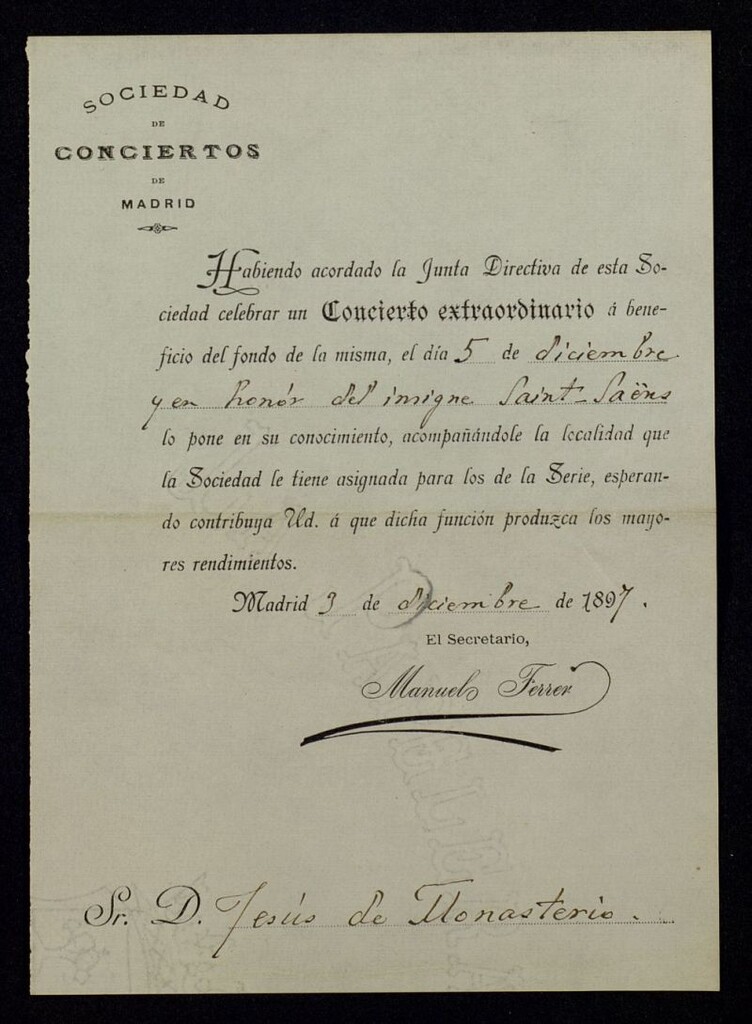 SOCIEDAD
DE
CONCIERTOS
DE
MADRID
Habiendo acordado la Junta Directiva de esta So-
ciedad celebrar un Concierto extraordinario á bene-
ficio del fondo de la misma, el día 5 de diciembre
y en honór del insigne Saint-Saëns
lo pone en su conocimiento, acompañándole la localidad que
la Sociedad le tiene asignada para los de la Serie, esperan-
do contribuya Ud. á que dicha función produzca los mayo-
res rendimientos.
Madrid 3 de diciembre de 1897.
El Secretario,
Manuel Ferrer
Sr. D. Jesús de Monasterio.